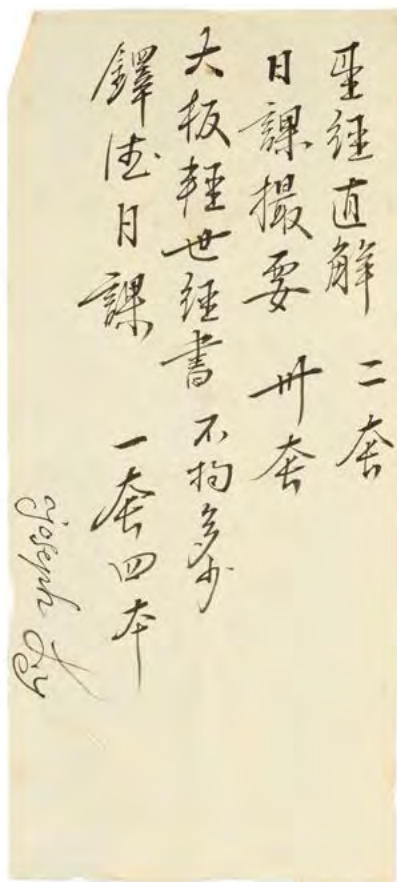 圣經直解 二套
日課撮要 卅套
大板輕世經書 不拘多少
鐸德日課 一套四本
Joseph